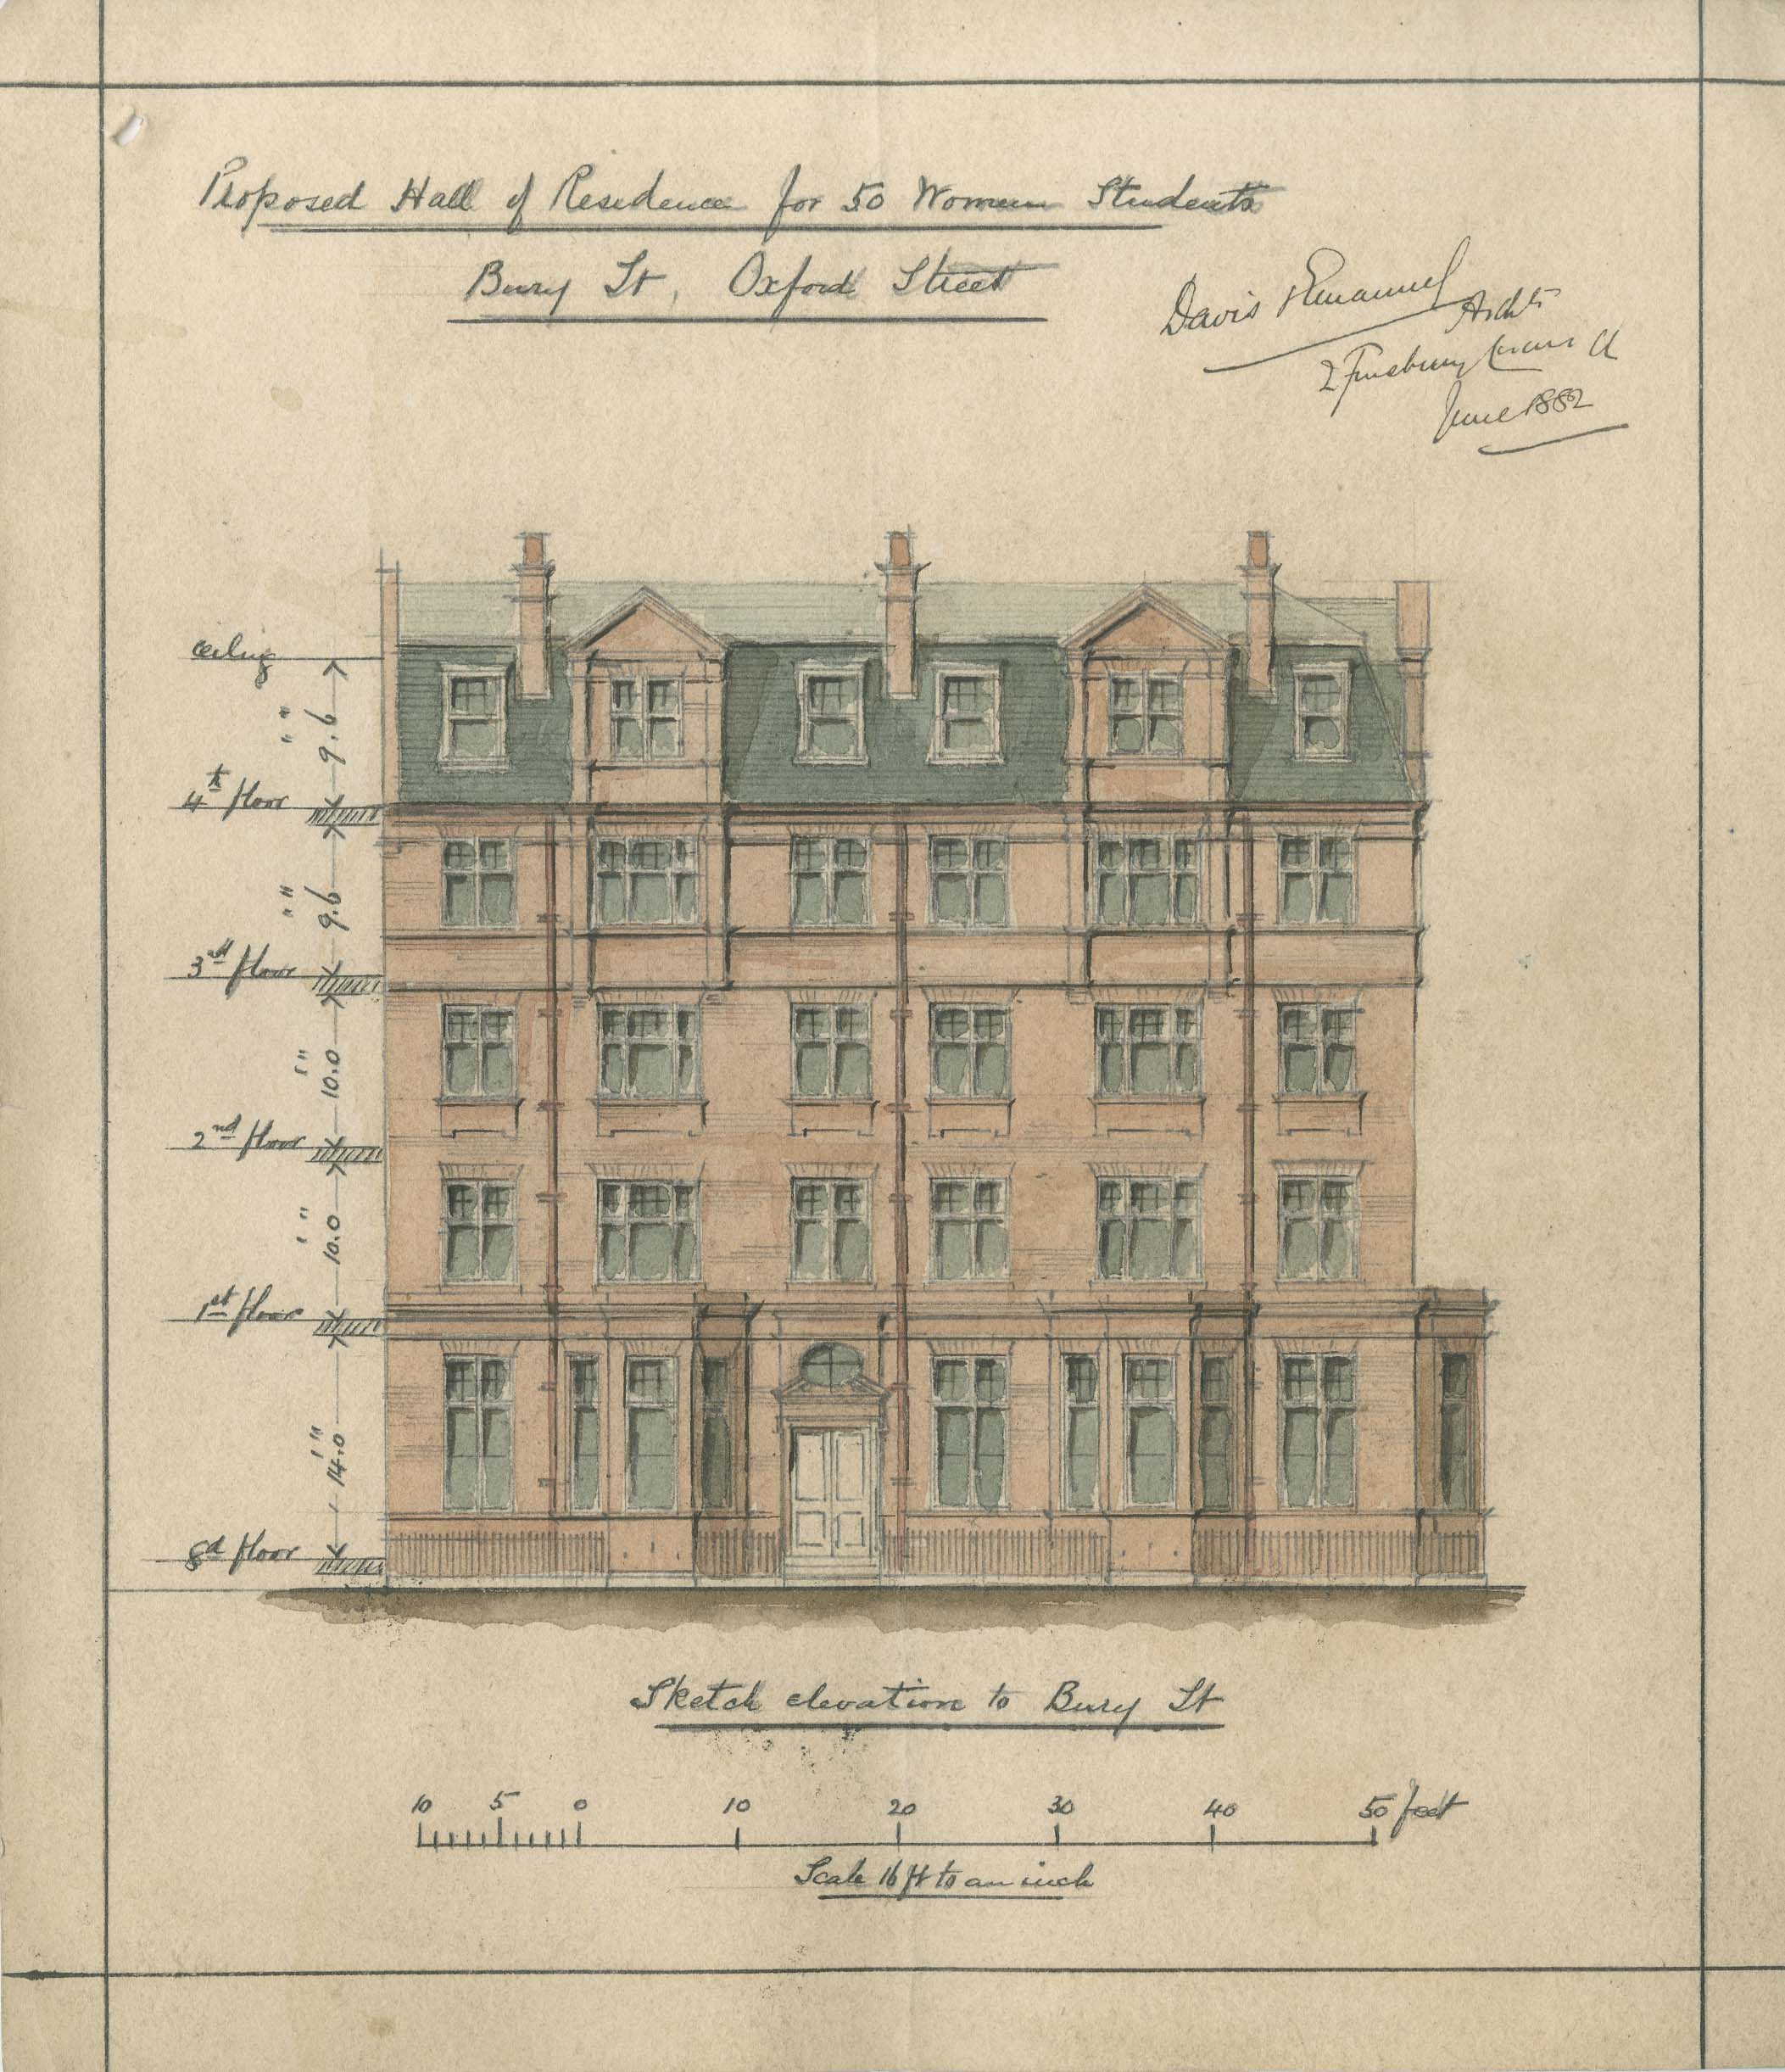 Proposed Hall of Residence for 50 Women Students
Bury St, Oxford Street
Davis & Emanuel
Archts
2 Finsbury Circus
June 1882
ceiling
9.6
4th floor
9.6
3rd floor
10.0
2nd floor
10.0
1st floor
14.0
gd floor
Sketch elevation to Bury St
10 5 0 10 20 30 40 50 feet
Scale 16 ft to an inch